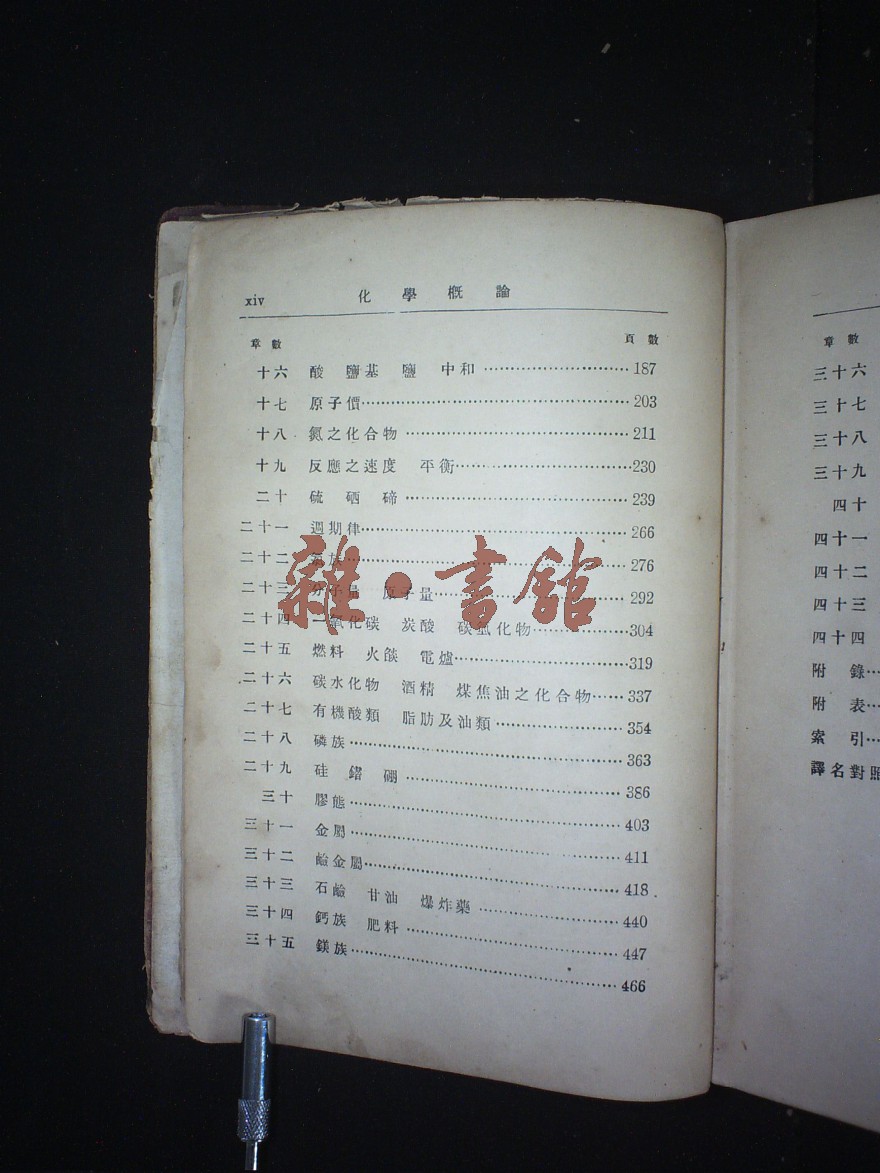 xiv 化學概論
章數 頁數
十六 酸 鹽基 鹽 中和 187
十七 原子價 203
十八 氮之化合物 211
十九 反應之速度 平衡 230
二十 硫 硒 碲 239
二十一 週期律 266
二十二 族 276
二十三 分子量 原子量 292
二十四 一氧化碳 炭酸 碳氫化物 304
二十五 燃料 火燄 電爐 319
二十六 碳水化物 酒精 煤焦油之化合物 337
二十七 有機酸類 脂肪及油類 354
二十八 磷族 363
二十九 硅 硼 386
三十 膠態 403
三十一 金屬 411
三十二 鹼金屬 418
三十三 石鹼 甘油 爆炸藥 440
三十四 鈣族 肥料 447
三十五 鎂族 466
雜·書館
章數
三十六
三十七
三十八
三十九
四十
四十一
四十二
四十三
四十四
附錄
附表
索引
譯名對照